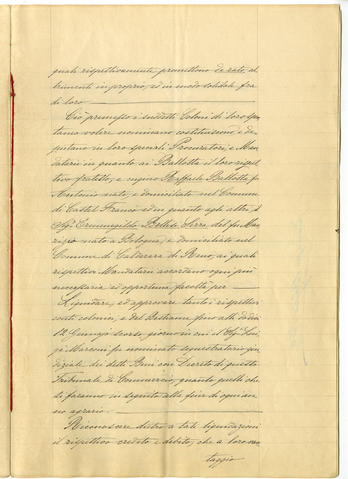 quali rispettivamente promettono de rato, al
trimenti in proprio, ed in modo solidale fra
di loro
Ciò premesso i suddetti Coloni di loro spon
tanea volere nominano costituiscono e de
putano in loro speciali Procuratori, e Man
datari in quanto ai Ballotta il loro rispet
tivo fratello, e cugino Raffaele Ballotta fu
Antonio nato, e domiciliato nel Comune
di Castel Franco ed in quanto agli altri, il
Sig. Ermenegildo del fu
nato a Bologna, e domiciliato nel
Comune di Calderara di Reno, ai quali
rispettivi Mandatari accordano ogni più
necessaria ed opportuna facoltà per
Liquidare, ed approvare tanto i rispettivi
conti colonici, e del Bestiame fino alli dodici
12 Gennajo scorso, giorno in cui il Sig. Lui
gi Marconi fu nominato sequestratario giu
diziale dei detti Beni con Decreto di questo
Tribunale di Commercio, quanto quelli che
si faranno in seguito alla fine di ogni an
no agrario.
Riconoscere dietro a tali liquidazioni
il rispettivo credito e debito, che a loro van
taggio